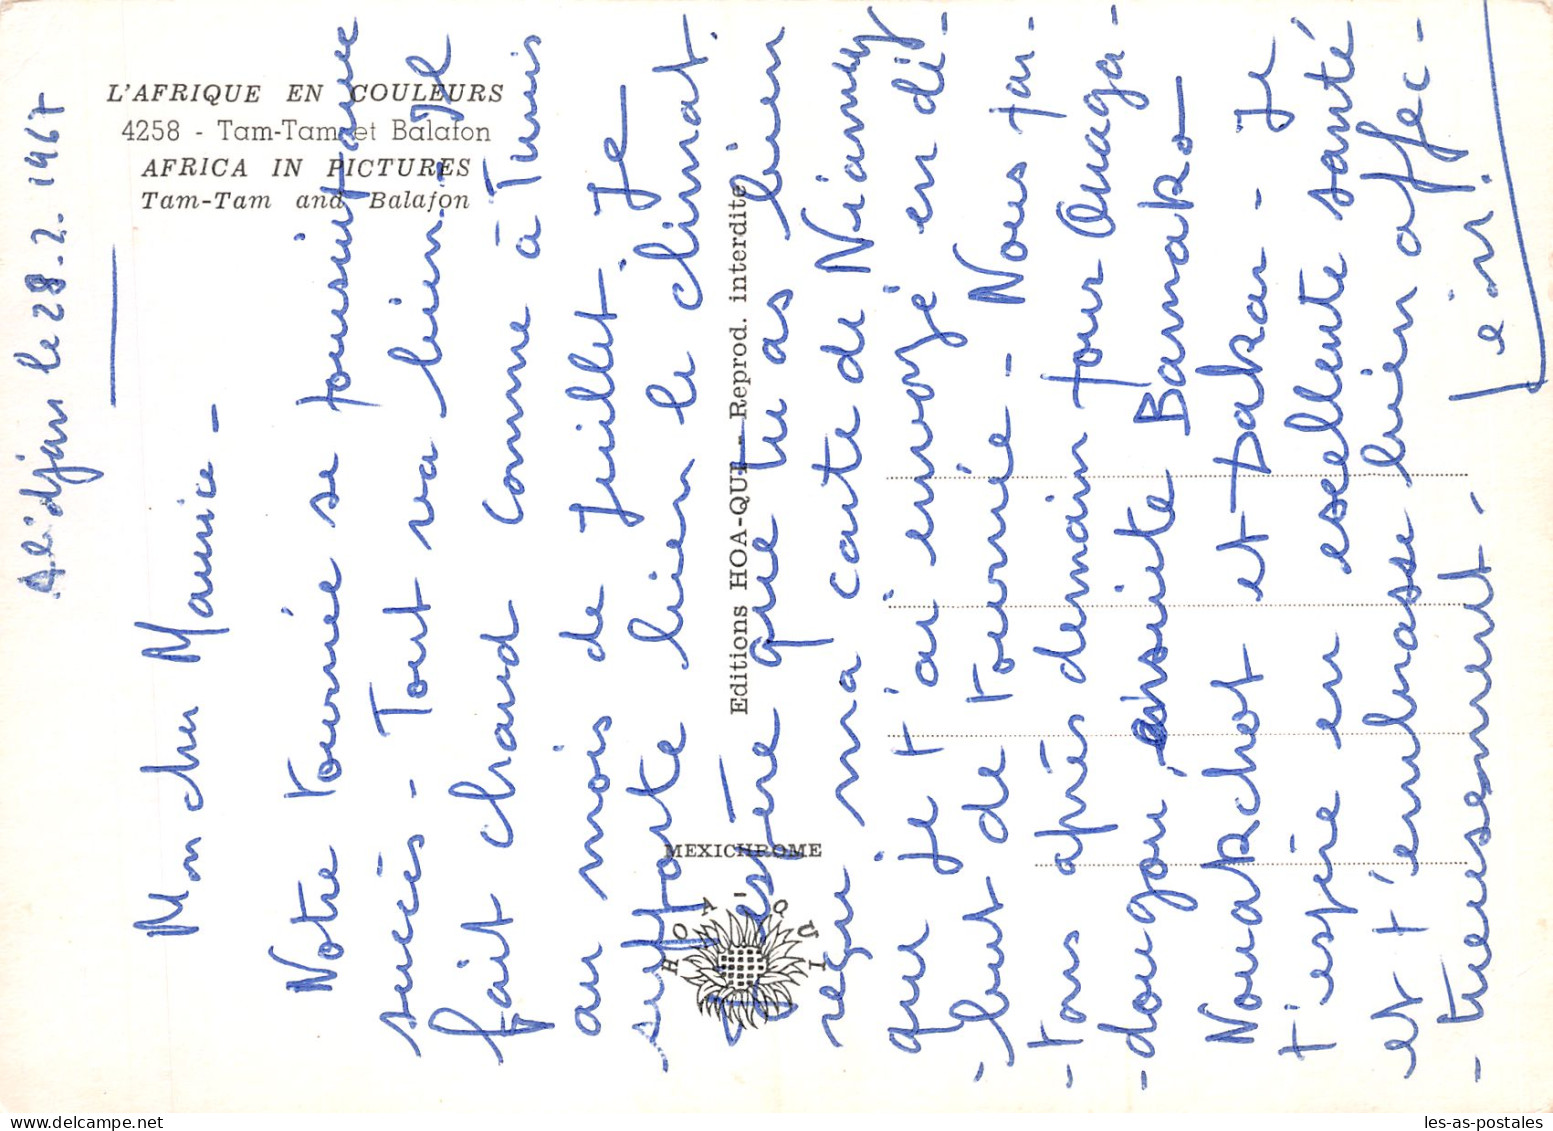 L'AFRIQUE EN COULEURS
4258 - Tam-Tam et Balafon
AFRICA IN PICTURES
Tam-Tam and Balafon
Editions HOA-QUI - Reprod. interdite
MEXICHROME
HOA-QUI
Abidjan le 28.2.1967
Mon cher Maurice -
Notre tournée se poursuit avec
succès - Tout va bien - Il
fait chaud comme à Tunis
au mois de Juillet. Je
supporte bien le climat.
J'espère que tu as bien
reçu ma carte de Niamey
que je t'ai envoyé en dé-
-but de tournée - Nous par-
-tons après demain pour Ouaga-
-dougou, ensuite Bamako
Nouakchot et Dakar - Je
t'espère en excellente santé
et t'embrasse bien affec-
-tueusement.
les-as-postales